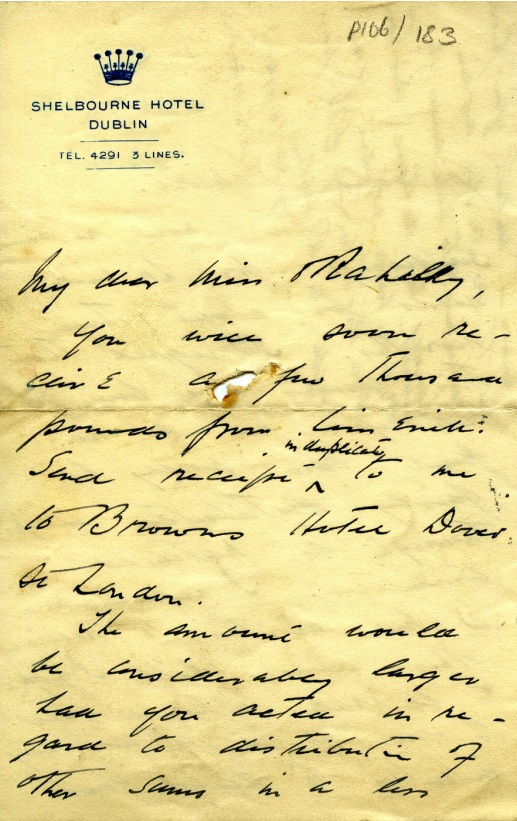 P106/183
SHELBOURNE HOTEL
DUBLIN
TEL. 4291 3 LINES.
My dear Miss O'Rahilly,
You will soon re-
ceive a few thousand
pounds from Limerick.
in duplicate
Send receipt ^ to me
to Browns Hotel Dover
St London.
The amount would
be considerably larger
had you acted in re-
gard to distribution of
other sums in a less